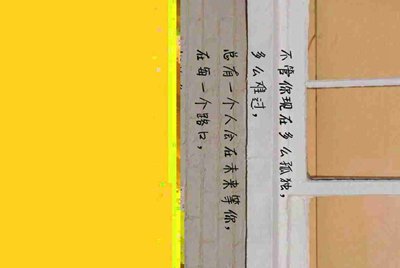 不管你现在多么孤独，
多么难过，
总有一个人会在未来等你，
在每一个路口，